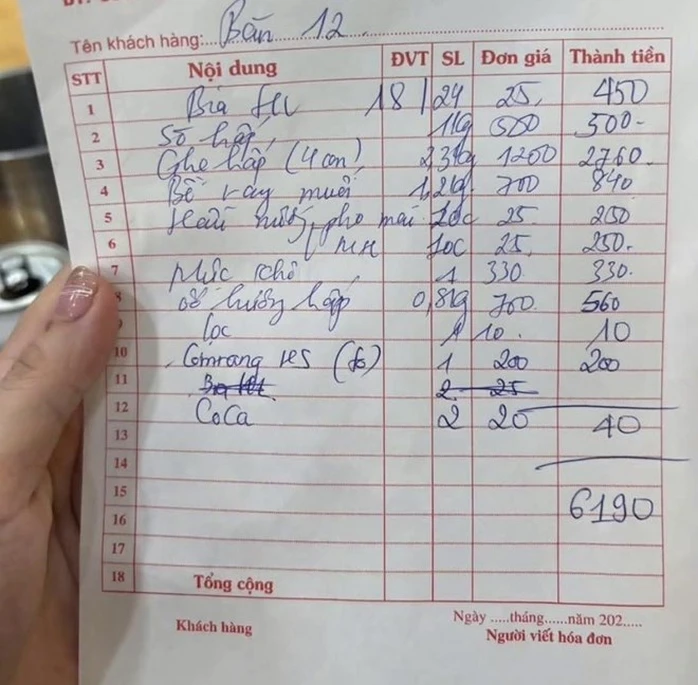 Tên khách hàng: Bàn 12
STT Nội dung ĐVT SL Đơn giá Thành tiền
1 Bia 18/24 25, 450
2 Sò hấp 1kg 500 500-
3 Ghẹ hấp (4 con) 2,3kg 1200 2760-
4 Bề xay muối 1,2kg 700 840
5 Hàu nướng pho mai 10c 25 250
6 MH 10c 25, 250-
7 Mực khô 1 330 330.
8 ốc hương hấp 0,8kg 700 560
9 lọc 1 10. 10
10 Comrang (to) 1 200 200
11 2 25
12 CoCa 2 20 40
13
14
15 6190
16
17
18 Tổng cộng
Ngày .....tháng......năm 202.....
Khách hàng Người viết hóa đơn